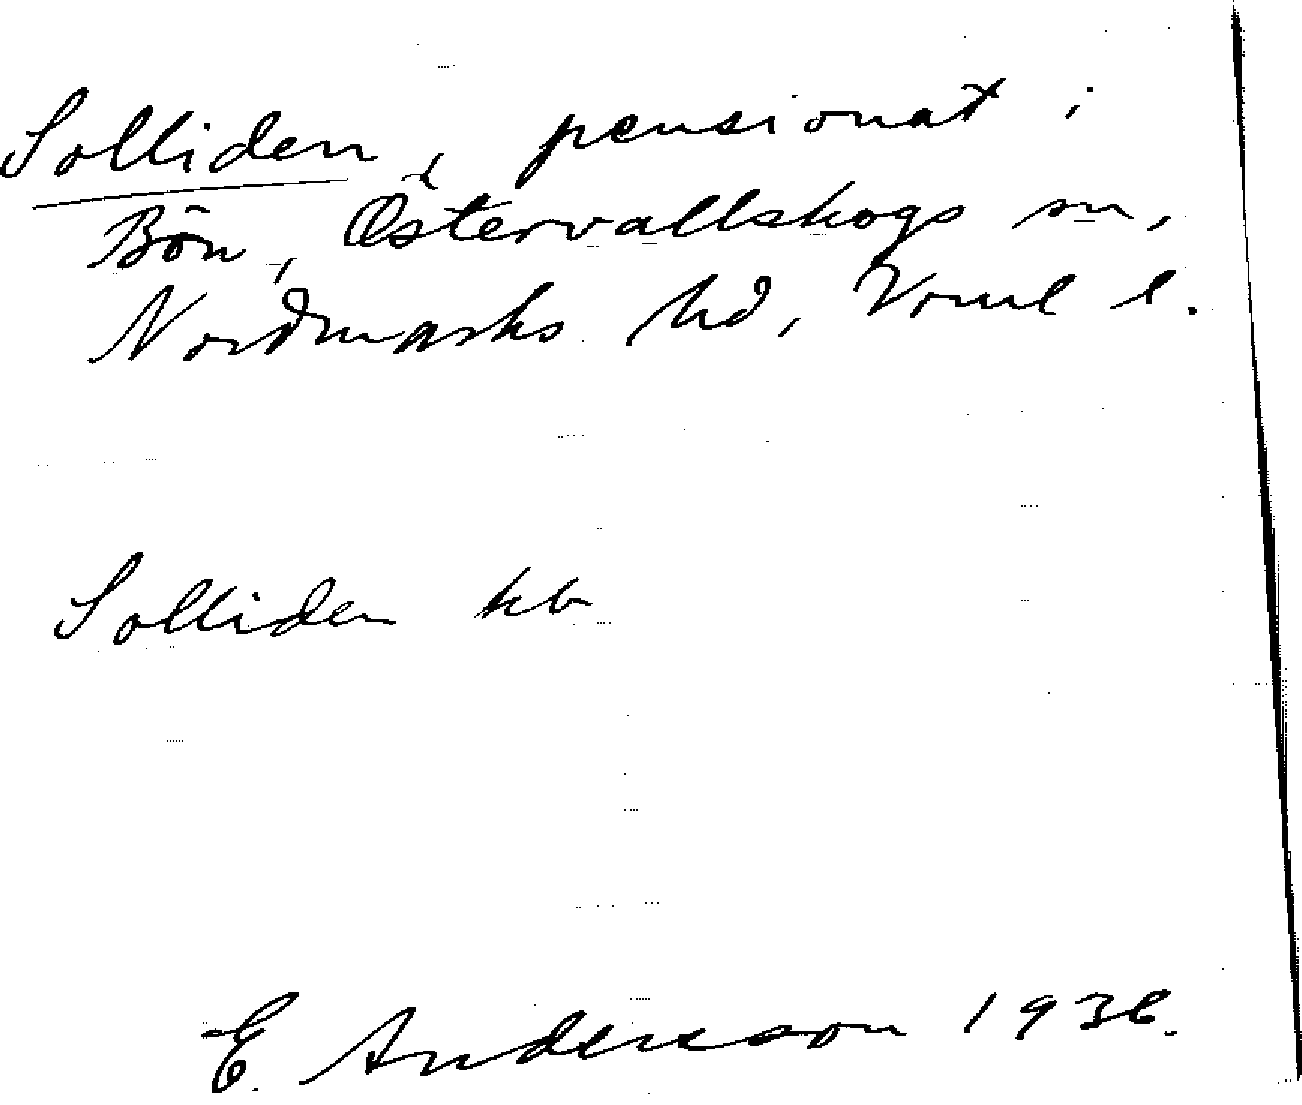 Solliden, pensionat i
Bön, Östervallskogs sn,
Nordmarks hd, Vrml l.
Solliden kb
E. Andersson 1936.